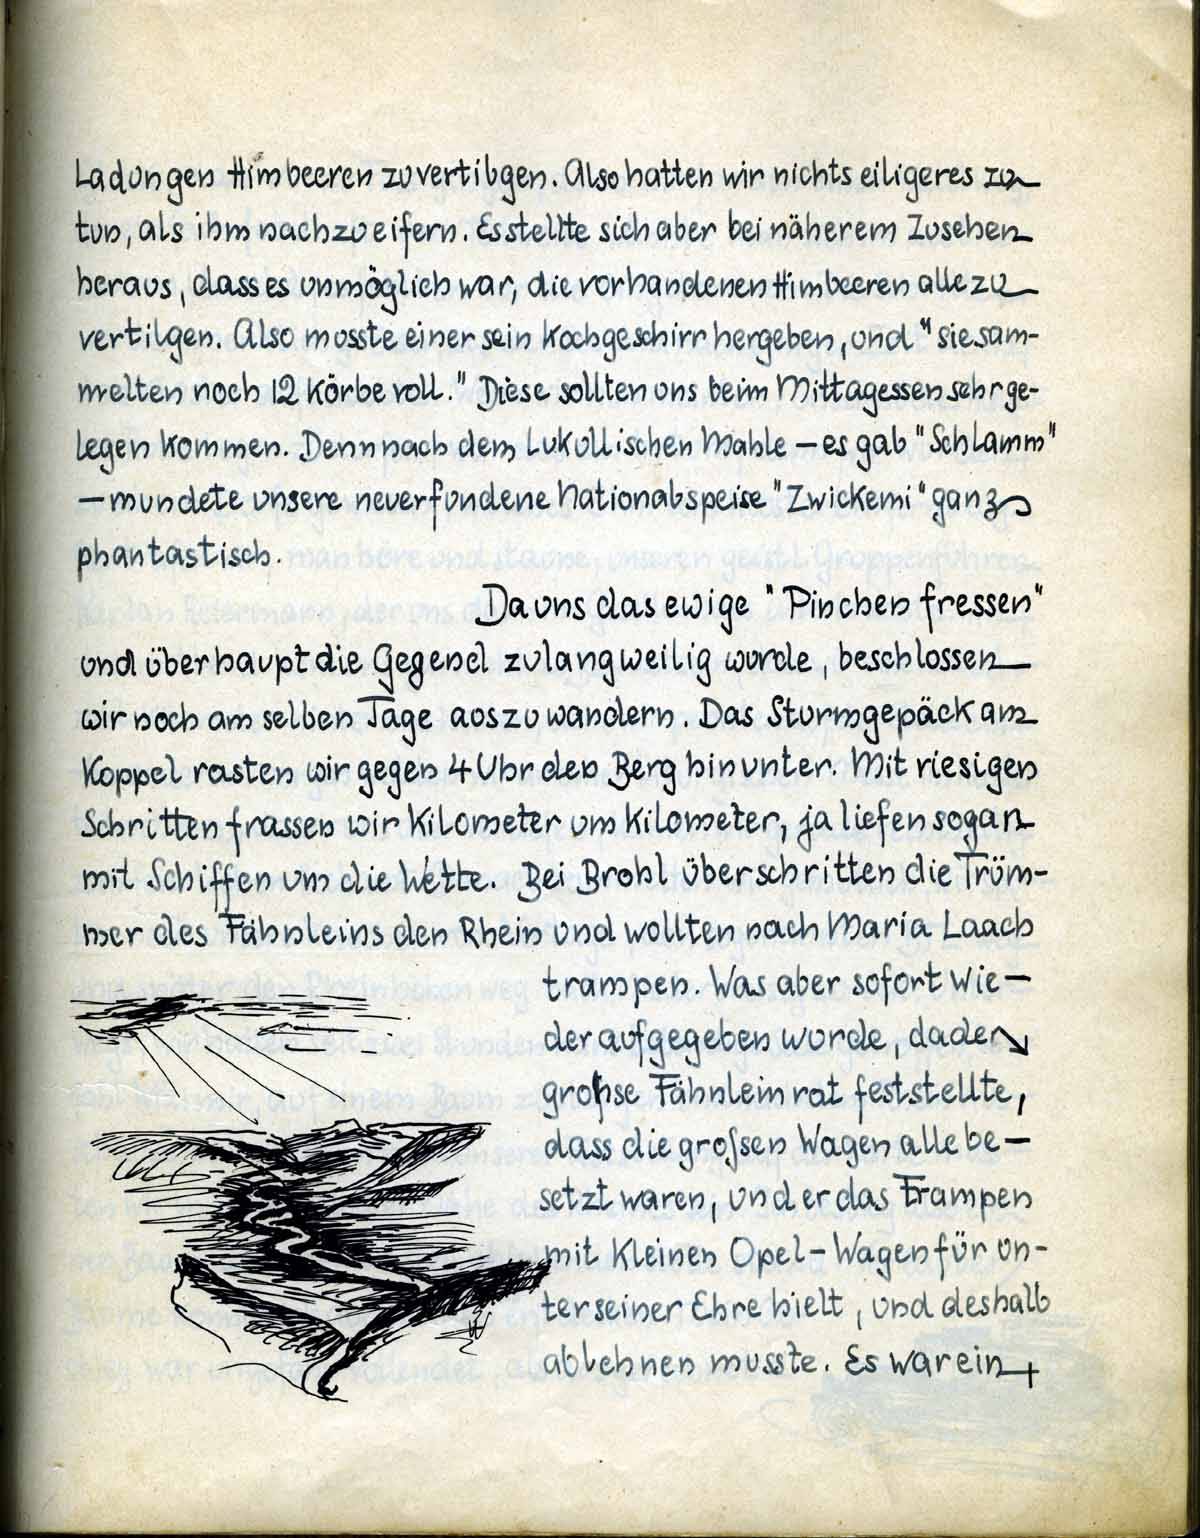 Ladungen Himbeeren zu vertilgen. Also hatten wir nichts eiligeres zu
tun, als ihm nachzueifern. Es stellte sich aber bei näherem Zusehen
heraus, dass es unmöglich war, die vorhandenen Himbeeren alle zu
vertilgen. Also musste einer sein Kochgeschirr hergeben, und "sie sam-
melten noch 12 Körbe voll." Diese sollten uns beim Mittagessen sehr ge-
legen kommen. Denn nach dem Lukullischen Mahle - es gab "Schlamm"
- mundete unsere neuerfundene Nationalspeise "Zwickemi" ganz
phantastisch.
Da uns das ewige "Pinchen fressen"
und überhaupt die Gegend zu langweilig wurde, beschlossen
wir noch am selben Tage auszuwandern. Das Sturmgepäck am
Koppel rasten wir gegen 4 Uhr den Berg hinunter. Mit riesigen
Schritten frassen wir Kilometer um Kilometer, ja liefen sogar
mit Schiffen um die Wette. Bei Brohl überschritten die Trüm-
mer des Fähnleins den Rhein und wollten nach Maria Laach
trampen. Was aber sofort wie-
der aufgegeben wurde, da der
grosse Fähnleinrat feststellte,
dass die großen Wagen alle be-
setzt waren, und er das Trampen
mit kleinen Opel-Wagen für un-
ter seiner Ehre hielt, und deshalb
ablehnen musste. Es war ein